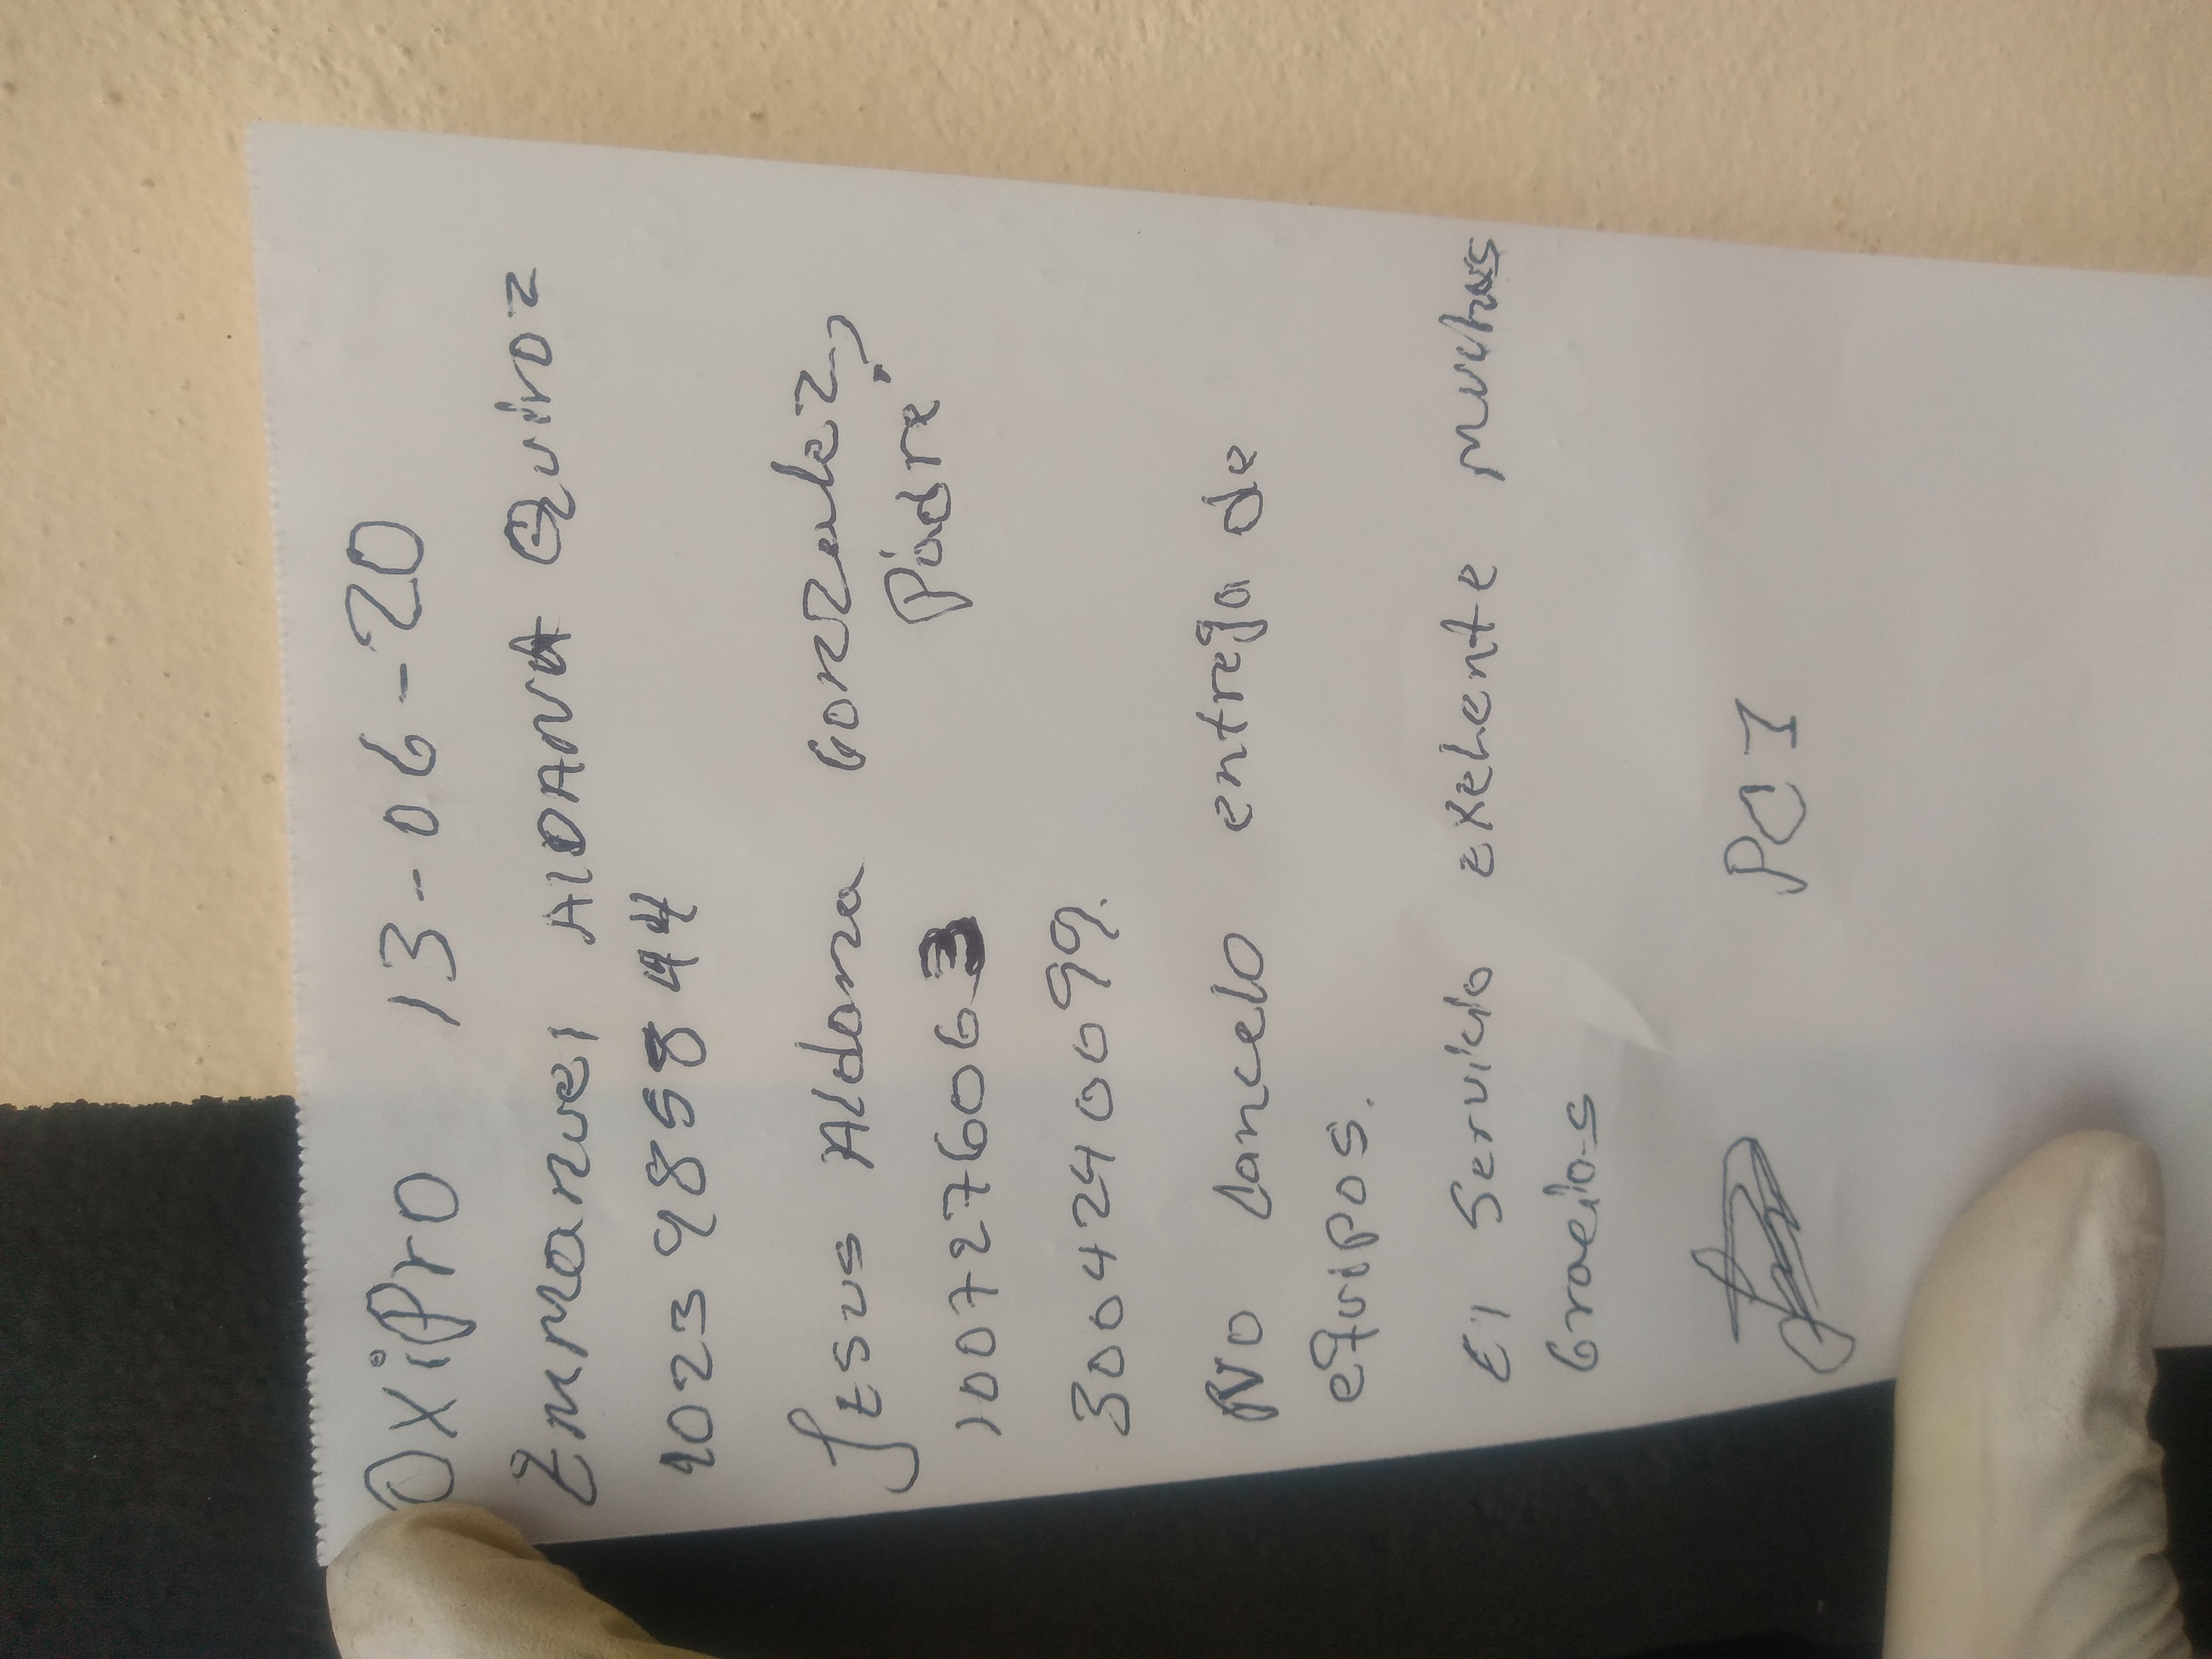 OxiPro 13-06-20
Emmanuel AlDANA Quiroz
1023985844
Jesus Aldana Gonzalez
Padre
1007276063
3004240699
No Cancelo entrega de
equipos.
El Servicio exelente muchas
Gracias
PCI